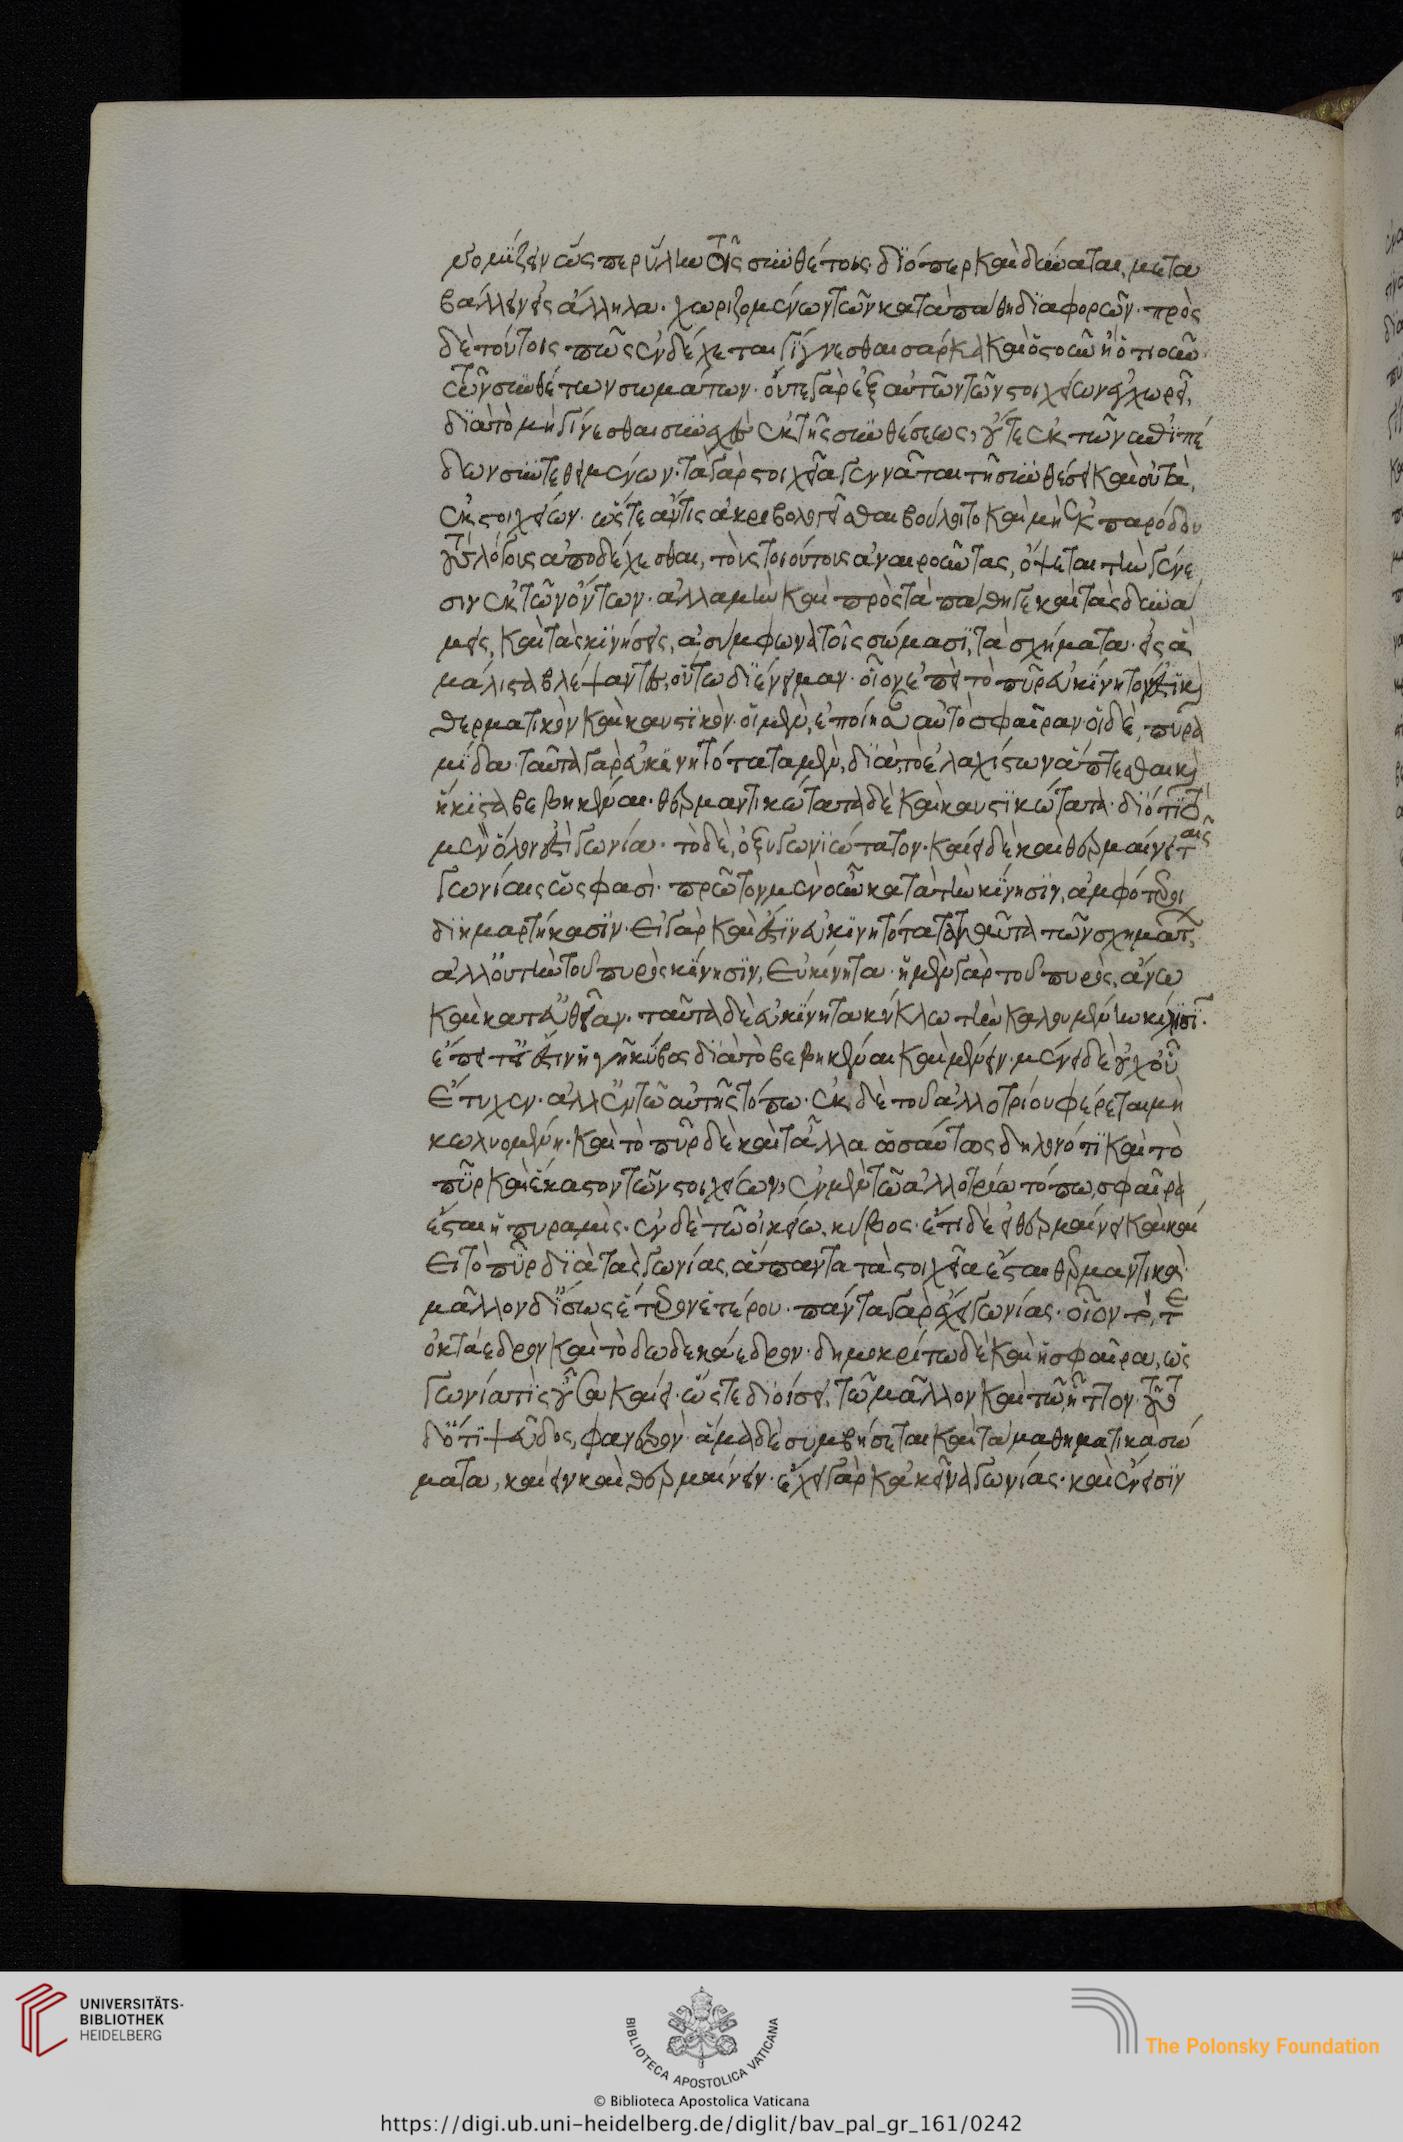 νομίζειν ὥσπερ ὕλην τοῖς συνθέτοις· διόπερ καὶ δύναται, μετα
βάλλειν εἰς ἄλληλα· χωριζομένων τῶν κατὰ τὰ πάθη διαφορῶν· πρὸς
δὲ τούτοις πῶς ἐνδέχεται γίγνεσθαι σάρκα καὶ ὀστοῦν ἢ ὁτιοῦν
τῶν συνθέτων σωμάτων· οὔτε γὰρ ἐξ αὐτῶν τῶν στοιχείων ἐγχωρεῖ,
διὰ τὸ μὴ γίνεσθαι συνεχὲς ἐκ τῆς συνθέσεως, οὔτε ἐκ τῶν ἐπιπέ
δων συντεθειμένων· τὰ γὰρ στοιχεῖα γεννᾶται τῇ συνθέσει καὶ οὐ τὰ,
ἐκ στοιχείων· ὥστε ἄν τις ἀκριβολογεῖσθαι βούλοιτο καὶ μὴ ἐκ παρόδου
τοὺς λόγους ἀποδέχεσθαι, τοὺς τοιούτους ἀναιροῦντας, ὄψεται τὴν γένε
σιν ἐκ τῶν ὄντων· ἀλλὰ μὴν καὶ πρὸς τὰ πάθη τε καὶ τὰς δυνά
μεις, καὶ τὰς κινήσεις, ἀσύμφωνα τοῖς σώμασι, τὰ σχήματα· εἰς ἃ
μάλιστα βλέψαντες, οὕτω διένειμαν· οἷον ἐπεὶ τὸ πῦρ εὐκίνητόν ἐστι καὶ
θερματικὸν καὶ καυστικὸν· οἱ μὲν, ἐποίησαν αὐτὸ σφαῖραν· οἱ δὲ, πυρα
μίδα· ταῦτα γὰρ εὐκινητότατα μὲν, διὰ τὸ ἐλαχίστων ἅπτεσθαι καὶ
ἥκιστα βεβηκέναι· θερμαντικώτατα δὲ καὶ καυστικώτατα· διότι τὸ
μὲν ὅλον ἐστὶ γωνία· τὸ δὲ, ὀξυγωνιώτατον· καίει δὲ καὶ θερμαίνει ταῖς
γωνίαις ὥς φασὶ· πρῶτον μὲν οὖν κατὰ τὴν κίνησιν, ἀμφότεροι
διημαρτήκασιν· εἰ γὰρ καὶ ἔστιν εὐκινητότατα ταῦτα τῶν σχημάτων,
ἀλλ' οὐ τὴν τοῦ πυρὸς κίνησιν, εὐκίνητα· ἡ μὲν γὰρ τοῦ πυρὸς, ἄνω
καὶ κατ' εὐθεῖαν· ταῦτα δὲ εὐκίνητα κύκλω τὴν καλουμένην κύλισιν·
ἔπειτ' εἰ ἔστιν ἡ γῆ κύβος διὰ τὸ βεβηκέναι καὶ μένειν· μένει δὲ οὐχ οὗ
ἔτυχεν· ἀλλ' ἐν τῶ αὐτῆς τόπω· ἐκ δὲ τοῦ ἀλλοτρίου φέρεται μὴ
κωλυομένη· καὶ τὸ πῦρ δὲ καὶ τἄλλα ὡσαύτως δηλονότι καὶ τὸ
πῦρ καὶ ἕκαστον τῶν στοιχείων, ἐν μὲν τῶ ἀλλοτρίω τόπω, σφαῖρα
ἔσται ἢ πυραμὶς· ἐν δὲ τῶ οἰκείω, κύβος· ἔτι δὲ εἰ θερμαίνει καὶ καί
ει τὸ πῦρ διὰ τὰς γωνίας, ἅπαντα τὰ στοιχεῖα ἔσται θερμαντικὰ·
μᾶλλον δ' ἴσως ἕτερον ἑτέρου· πάντα γὰρ ἔχει γωνίας· οἷον τό, τε
ὀκτάεδρον καὶ τὸ δωδεκάεδρον· δημοκρίτω δὲ καὶ ἡ σφαῖρα, ὡς
γωνία τὶς οὖσα καίει· ὥστε διοίσει, τῶ μᾶλλον καὶ τῶ ἧττον· τοῦτο
δ' ὅτι ψεῦδος, φανερὸν· ἅμα δὲ συμβήσεται καὶ τὰ μαθηματικὰ σώ
ματα, καίειν καὶ θερμαίνειν· ἔχει γὰρ κἀκεῖνα γωνίας· καὶ ἔνεισιν
UNIVERSITÄTS-
BIBLIOTHEK
HEIDELBERG
BIBLIOTECA APOSTOLICA VATICANA
© Biblioteca Apostolica Vaticana
The Polonsky Foundation
https://digi.ub.uni-heidelberg.de/diglit/bav_pal_gr_161/0242